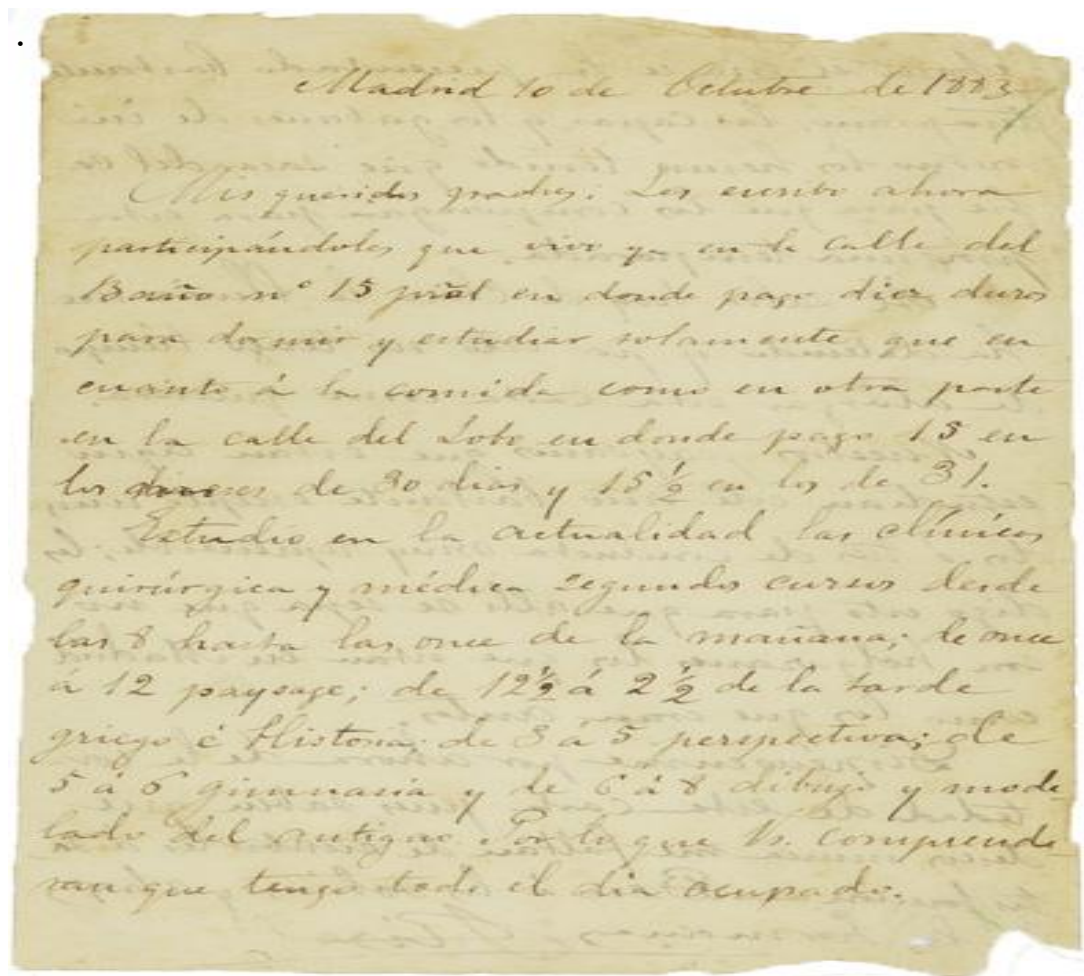 Madrid 10 de Octubre de 1883
Mis queridos padres: Les escribo ahora
participándoles que vivo ya en la calle del
Baño nº 15 pral en donde pago diez duros
para dormir y estudiar solamente que en
cuanto á la comida como en otra parte
en la calle del Lobo en donde pago 15 en
los meses de 30 dias y 15 ½ en los de 31.
Estudio en la actualidad las clínicas
quirúrgica y médica segundos cursos desde
las 8 hasta las once de la mañana; de once
á 12 paysage; de 12 ½ á 2 ½ de la tarde
griego é Historia; de 3 á 5 perspectiva; de
5 á 6 gimnasia y de 6 á 8 dibujo y mode-
lado del antiguo. Por lo que Vs. comprende-
ran que tengo todo el dia ocupado.